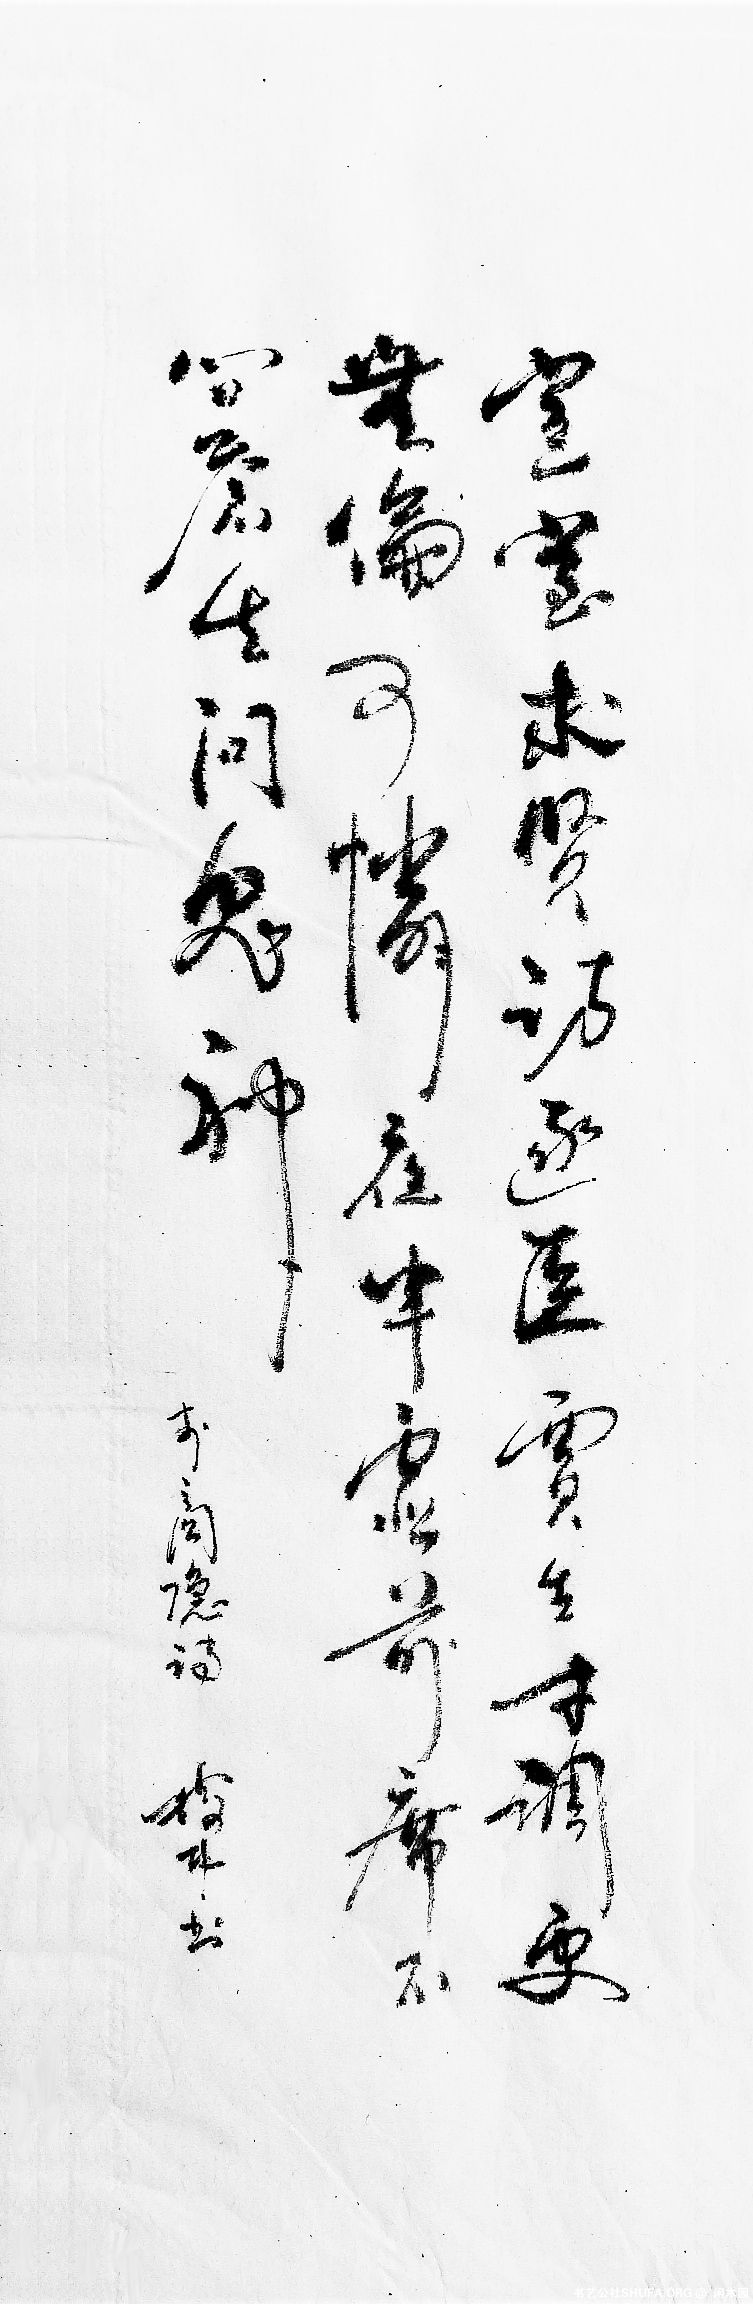 宣室求贤访逐臣賈生才调更
無倫可憐夜半虚前席不
问蒼生问鬼神
李商隐诗 林书
书艺公社SHUFA.ORG